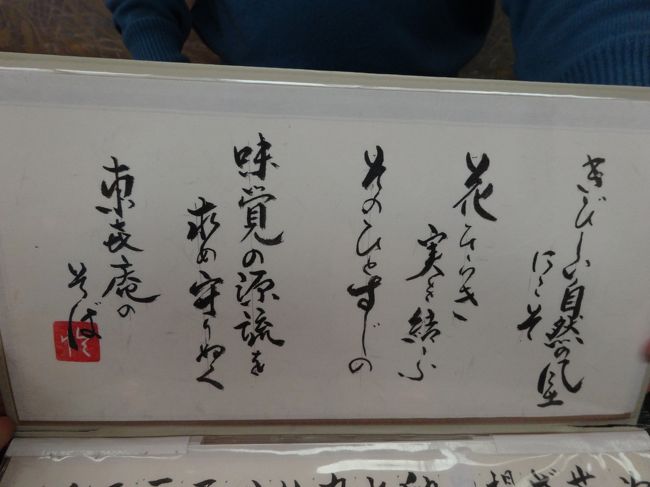 きびしい自然の風土
にこそ
花ひらき
実を結ぶ
そのひとすじの
味覚の源流を
求め守りぬく
東喜庵の
そば